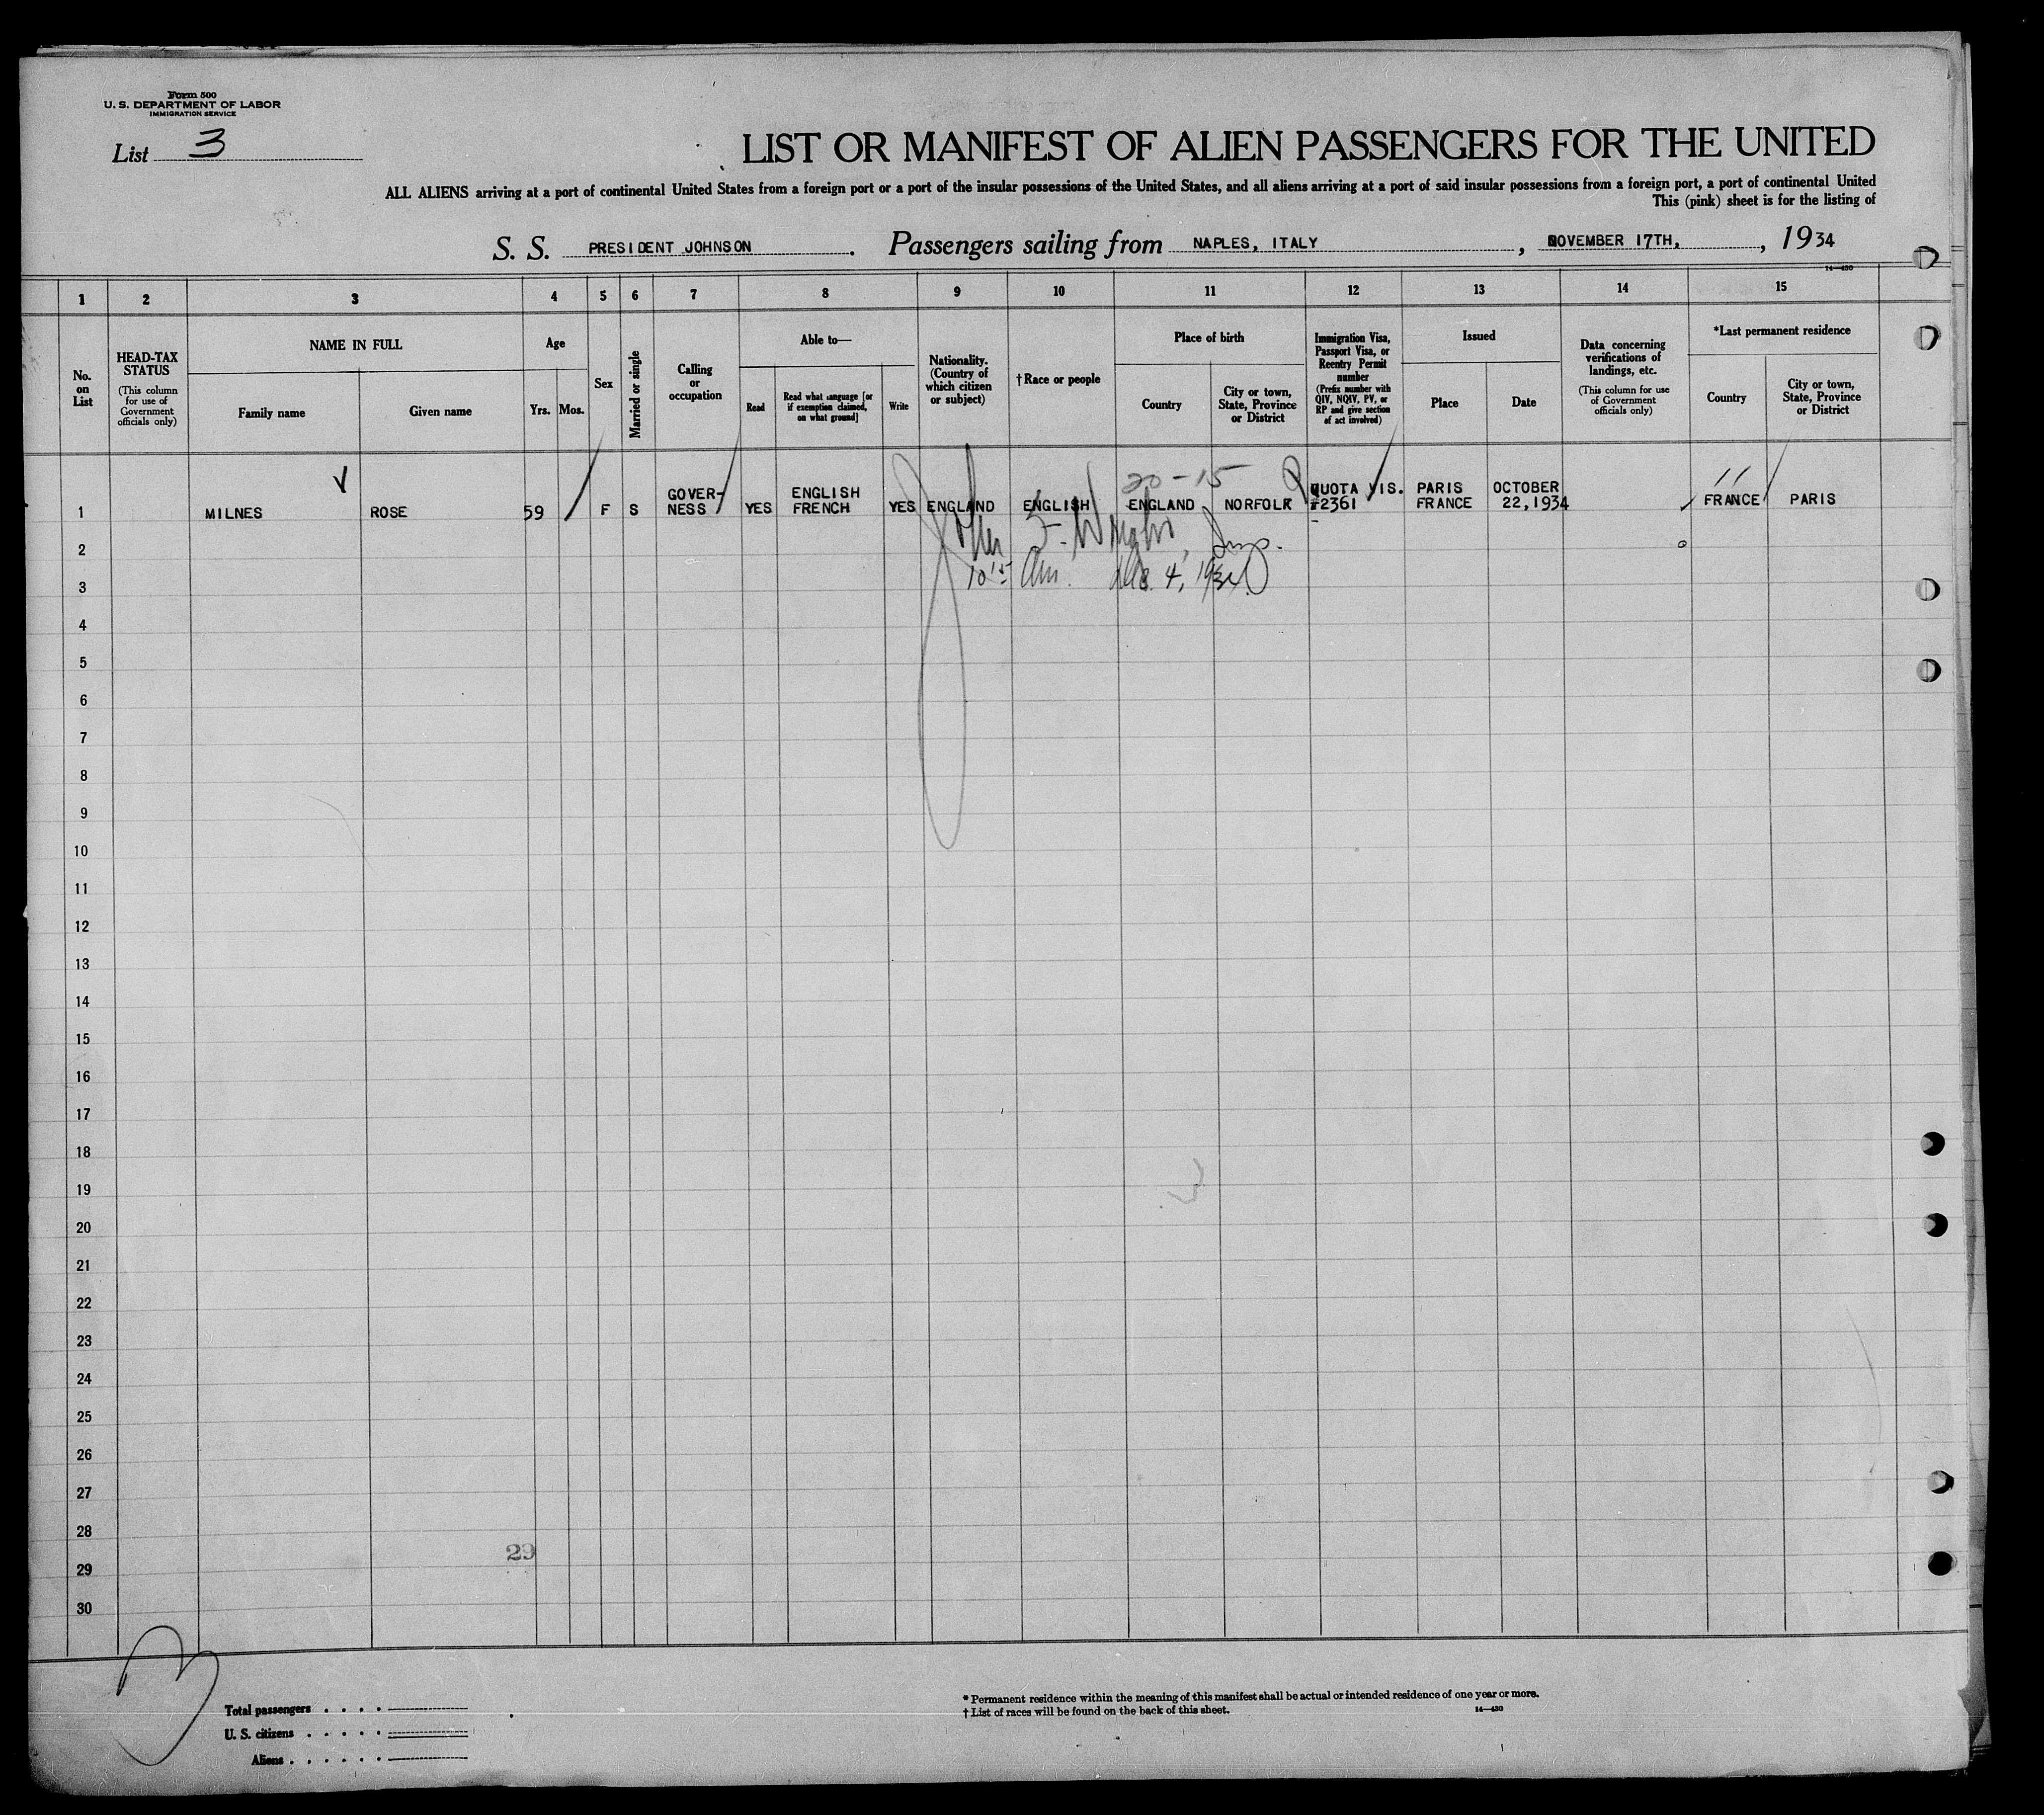 Form 500
U. S. DEPARTMENT OF LABOR
IMMIGRATION SERVICE
List 3
LIST OR MANIFEST OF ALIEN PASSENGERS FOR THE UNITED
ALL ALIENS arriving at a port of continental United States from a foreign port or a port of the insular possessions of the United States, and all aliens arriving at a port of said insular possessions from a foreign port, a port of continental United
This (pink) sheet is for the listing of
S. S. PRESIDENT JOHNSON. Passengers sailing from NAPLES, ITALY, NOVEMBER 17TH, , 1934
14—430
1 2 3 4 5 6 7 8 9 10 11 12 13 14 15
No. on List
HEAD-TAX STATUS
(This column for use of Government officials only)
NAME IN FULL
Family name
Given name
Age
Yrs.
Mos.
Sex
Married or single
Calling or occupation
Able to—
Read
Read what language [or if exemption claimed, on what ground]
Write
Nationality. (Country of which citizen or subject)
† Race or people
Place of birth
Country
City or town, State, Province or District
Immigration Visa, Passport Visa, or Reentry Permit number
(Prefix number with QIV, NQIV, PV, or RP and give section of act involved)
Issued
Place
Date
Data concerning verifications of landings, etc.
(This column for use of Government officials only)
*Last permanent residence
Country
City or town, State, Province or District
20-15
1 MILNES ROSE 59 F S GOVER-NESS YES ENGLISH FRENCH YES ENGLAND ENGLISH ENGLAND NORFOLK QUOTA VIS. #2361 PARIS FRANCE OCTOBER 22,1934 FRANCE PARIS
2 Insp.
3 10 15 Am. 4, 1934
4
5
6
7
8
9
10
11
12
13
14
15
16
17
18
19
20
21
22
23
24
25
26
27
28
29
29
30
Total passengers
U. S. citizens
Aliens
* Permanent residence within the meaning of this manifest shall be actual or intended residence of one year or more.
† List of races will be found on the back of this sheet.
14—430